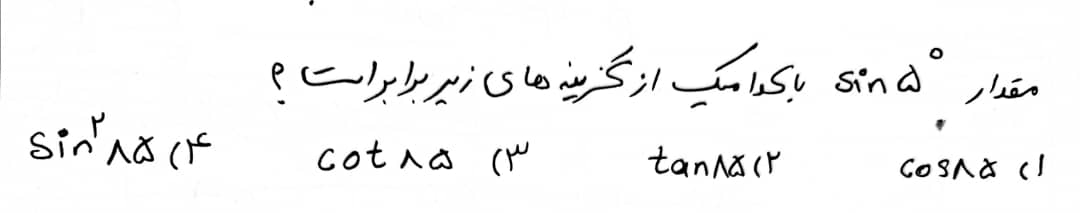 مقدار sin ۵° با کدامیک از گزینه های زیر برابر است ؟
۱) cos ۸۵ ۲) tan ۸۵ ۳) cot ۸۵ ۴) sin^۲ ۸۵